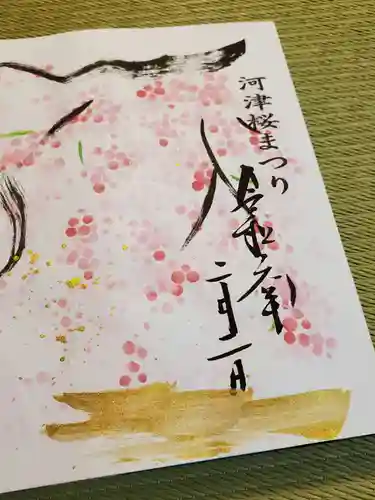 河津桜まつり
令和六年
二月二日